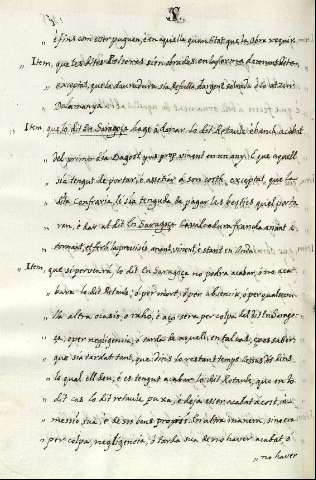 è fins com esser puguen, è en aquella quantitat que la obra requir.
Item, que les dites Polseres sien obrades en la forma demunt dita
exceptat, que la
Dalamanya
Item, que lo dit En Saragoça haje à dorar lo dit Retaule, è banch acabat
del primer dia Dagost pus prop vinent en un any: E que aquell
sia tengut de portar, è assetiar à son cost, exceptat que la
dita Confraria, li sia tenguda de pagar les besties quel porta
ran, è dar al dit En Saragoça cavalcadura franch anant è
tornant, è fer li la provisio anant, vinent, è stant en
Item, que si per ventura, lo dit En Saragoça no podra acabar, ò no aca-
bara lo dit Retaule; ò per mort, ò per absencia, ò per qualsevu-
lla altra ocasio, o raho, è aço sera per colpa del dit En Sarago-
ça, o per negligencia, ò tarda de aquell, en tal cas, ço es saber
que sia tardat tant, que dins lo restant temps
lo qual ell deu, è es tengut acabar lo dit Retaule, que en lo
dit cas lo dit retaule puxa, è deja esser acabat à cost, è
messio sua, è de sos bens propis. En altra manera, si no era
per colpa, negligencia, ò tarda sua de no haver acabat, ò
no haver